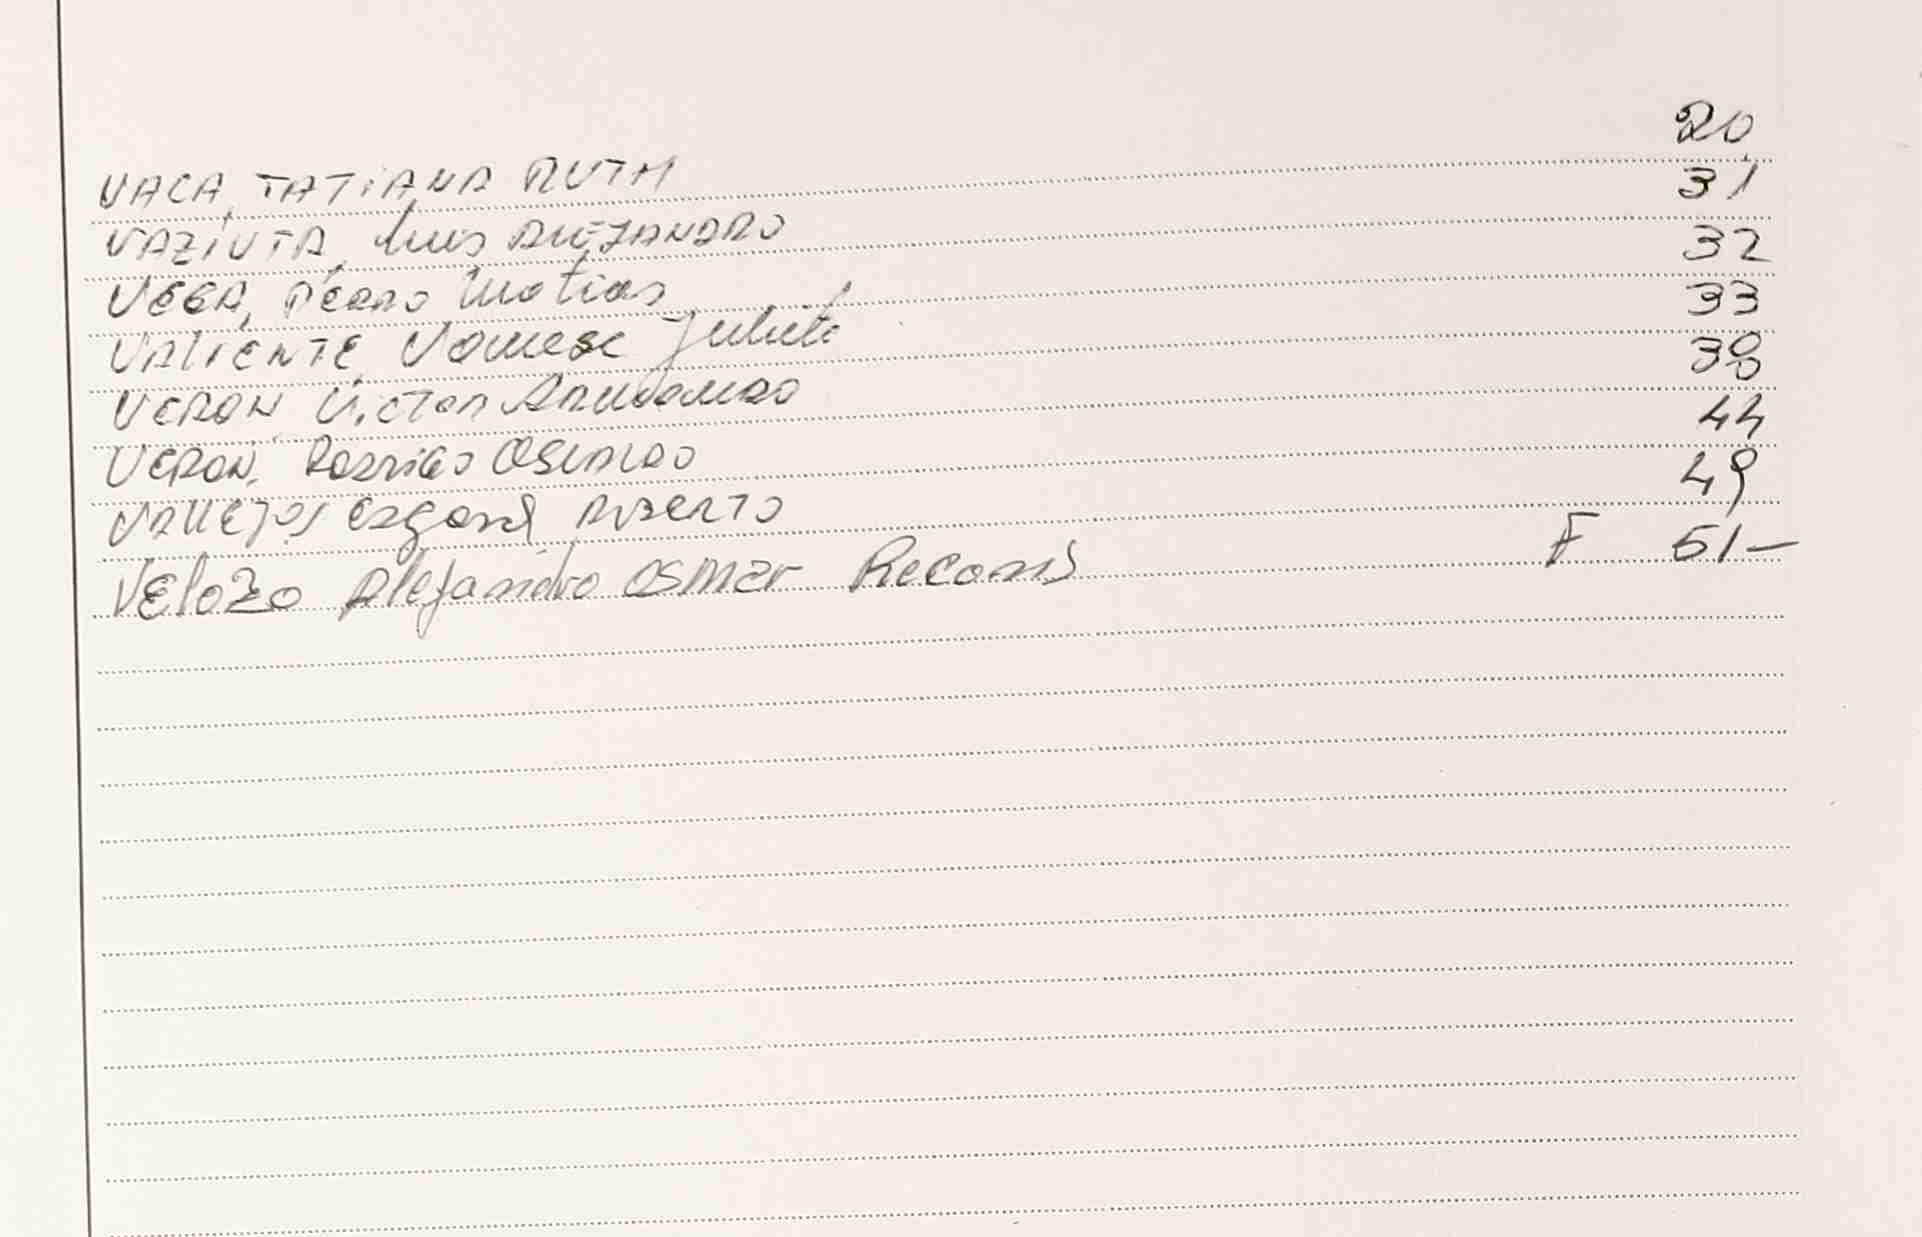 VACA, TATIANA RUTH 20
VAZIUTA, Luis ALEJANDRO 31
VEGA, PEDRO Matias 32
VALIENTE, Julieta 33
VERON Victor 38
VERON, Rodrigo OSVALDO 44
VALLEJOS Edgard ALBERTO 49
VELOZO Alejandro OSMAR F 51-